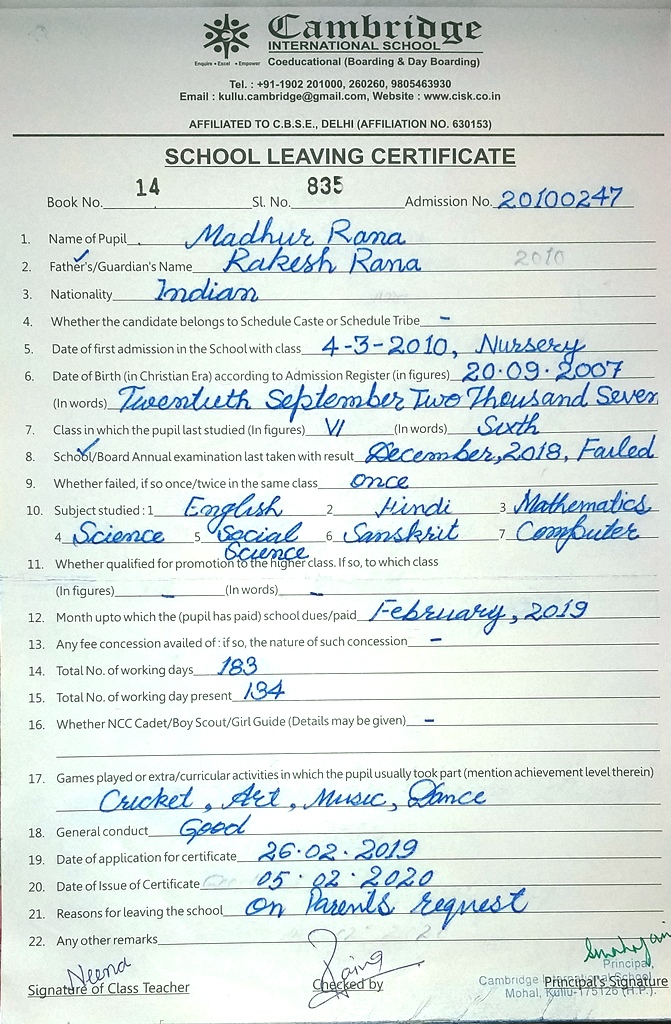 Cambridge
INTERNATIONAL SCHOOL
Enquire • Excel • Empower
Coeducational (Boarding & Day Boarding)
Tel. : +91-1902 201000, 260260, 9805463930
Email : kullu.cambridge@gmail.com, Website : www.cisk.co.in
AFFILIATED TO C.B.S.E., DELHI (AFFILIATION NO. 630153)
SCHOOL LEAVING CERTIFICATE
Book No. 14 Sl. No. 835 Admission No. 20100247
1. Name of Pupil Madhur Rana
2. Father's/Guardian's Name Rakesh Rana 2010
3. Nationality Indian
4. Whether the candidate belongs to Schedule Caste or Schedule Tribe -
5. Date of first admission in the School with class 4-3-2010, Nursery
6. Date of Birth (in Christian Era) according to Admission Register (in figures) 20.09.2007
(In words) Twentieth September Two Thousand Seven
7. Class in which the pupil last studied (In figures) VI (In words) Sixth
8. School/Board Annual examination last taken with result December, 2018, Failed
9. Whether failed, if so once/twice in the same class once
10. Subject studied : 1 English 2 Hindi 3 Mathematics
4 Science 5 Social Science 6 Sanskrit 7 Computer
11. Whether qualified for promotion to the higher class. If so, to which class
(In figures) - (In words) -
12. Month upto which the (pupil has paid) school dues/paid February, 2019
13. Any fee concession availed of : if so, the nature of such concession -
14. Total No. of working days 183
15. Total No. of working day present 134
16. Whether NCC Cadet/Boy Scout/Girl Guide (Details may be given) -
17. Games played or extra/curricular activities in which the pupil usually took part (mention achievement level therein)
Cricket, Art, Music, Dance
18. General conduct Good
19. Date of application for certificate 26.02.2019
20. Date of Issue of Certificate 05.02.2020
21. Reasons for leaving the school On Parents request
22. Any other remarks
Neena
Signature of Class Teacher Checked by Principal's Signature
Principal,
Cambridge International School,
Mohal, Kullu-175126 (H.P.).